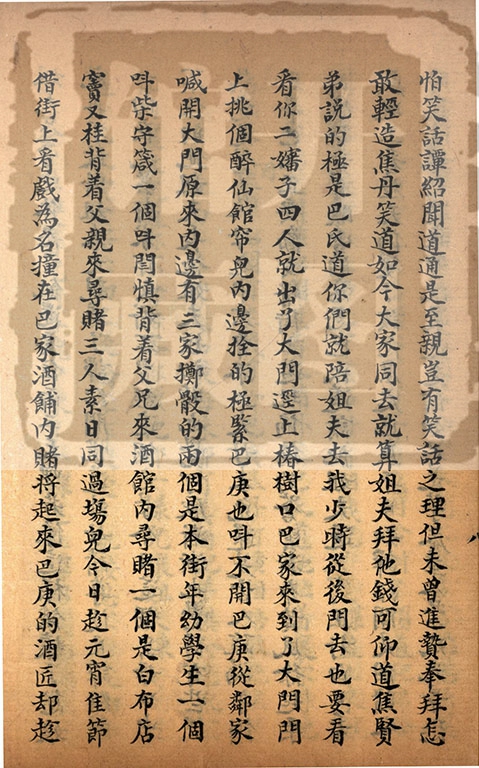 怕笑話譚紹聞道通是至親豈有笑話之理但未曾進贄奉拜怎
敢輕造焦丹笑道如今大家同去就算姐夫拜他錢可仰道焦賢
弟説的極是巴氏道你們就陪姐夫去我少時從後門去也要看
看你二嬸子四人就出了大門逕上椿樹口巴家來到了大門門
上挑個醉仙館帘兒內邊拴的極緊巴庚也呌不開巴庚從鄰家
喊開大門原來內邊有三家擲骰的兩個是本街年幼學生一個
呌柴守箴一個呌閆慎背着父兄來酒館內尋賭一個是白布店
竇又桂背着父親來尋賭三人素日同過塲兒今日趁元宵佳節
借街上看戲為名撞在巴家酒舖內賭將起來巴庚的酒匠却趁
八